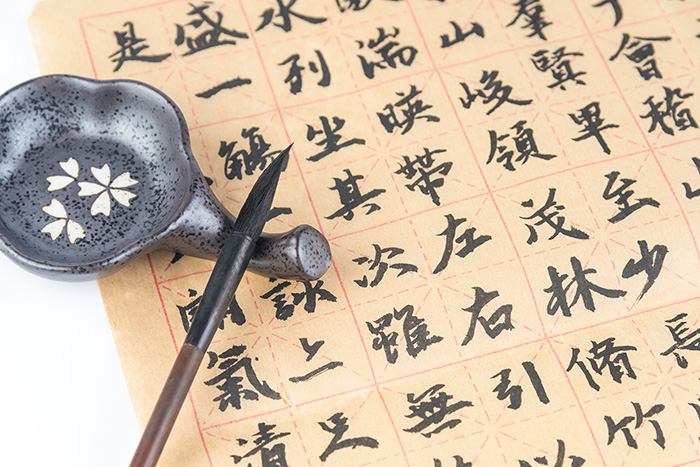 會稽山
群賢畢至少長
山峻領茂林脩竹
湍映帶左右引
水列坐其次雖無
盛一觴一詠亦足
是朗氣清